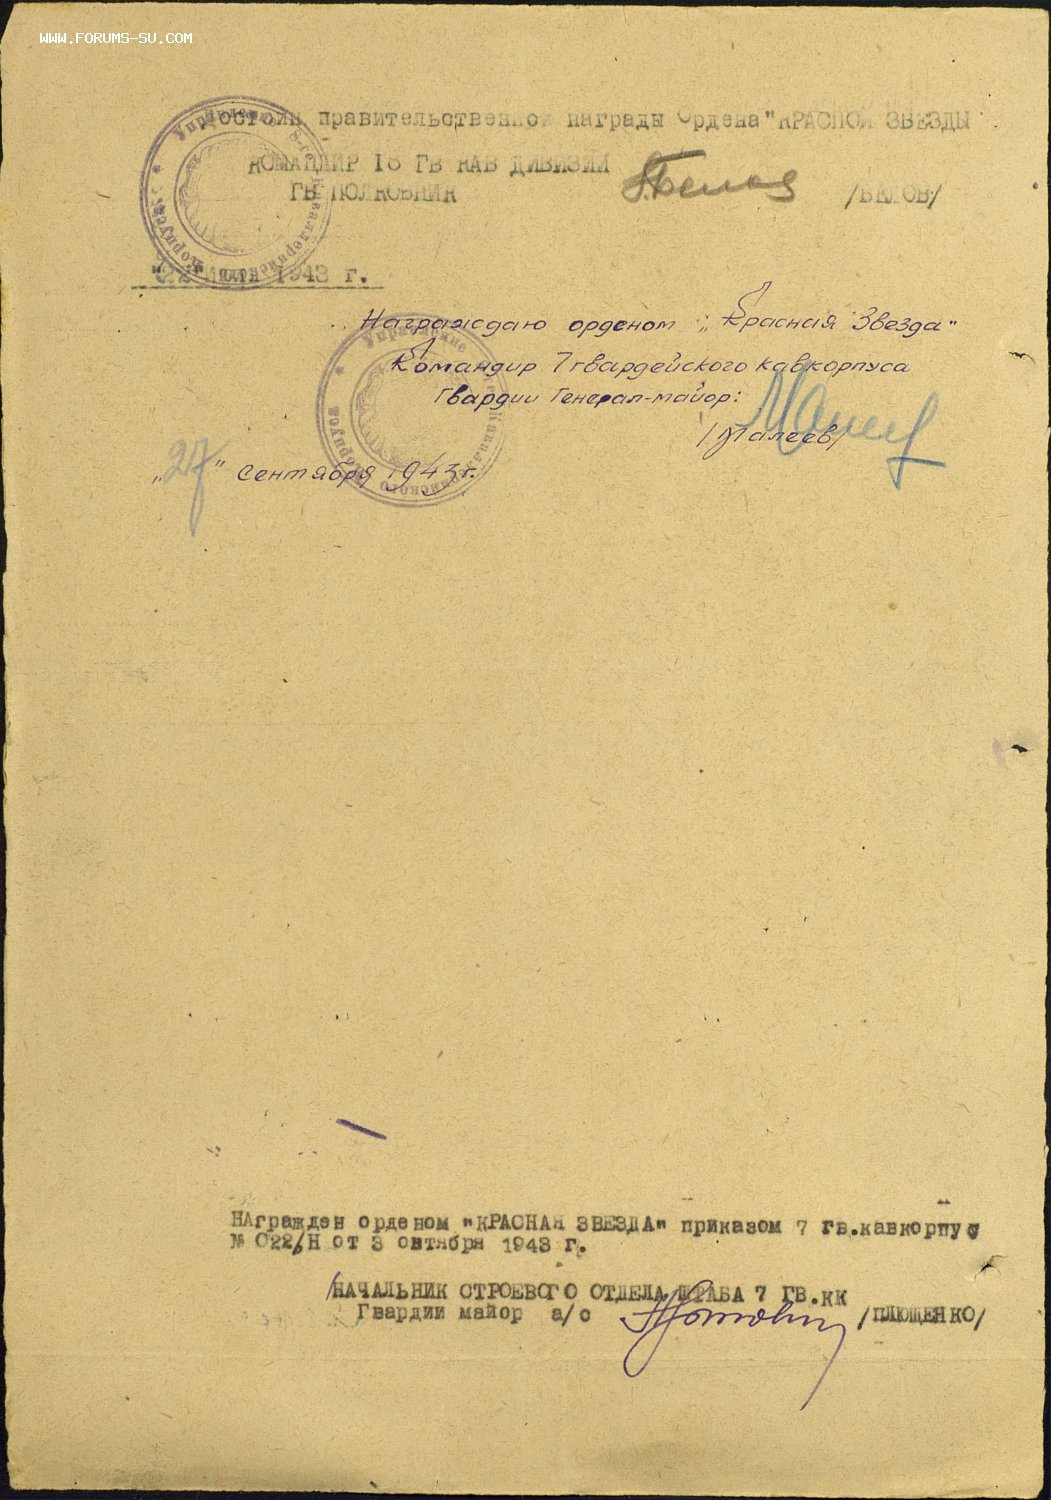 WWW.FORUMS-SU.COM
Достоин правительственной награды Ордена "КРАСНОЙ ЗВЕЗДЫ
КОМАНДИР 16 ГВ КАВ ДИВИЗИИ
ГВ ПОЛКОВНИК /БЕЛОВ/
1943 г.
Награждаю орденом „Красная Звезда"
Командир 7 гвардейского кавкорпуса
Гвардии Генерал-майор:
/Малеев/
„27" сентября 1943 г.
НАгражден орденом "КРАСНАЯ ЗВЕЗДА" приказом 7 гв.кавкорпус
№ 022/Н от 3 октября 1943 г.
НАЧАЛЬНИК СТРОЕВОГО ОТДЕЛА ШТАБА 7 ГВ.КК
Гвардии майор а/с /ПЛЮЩЕНКО/